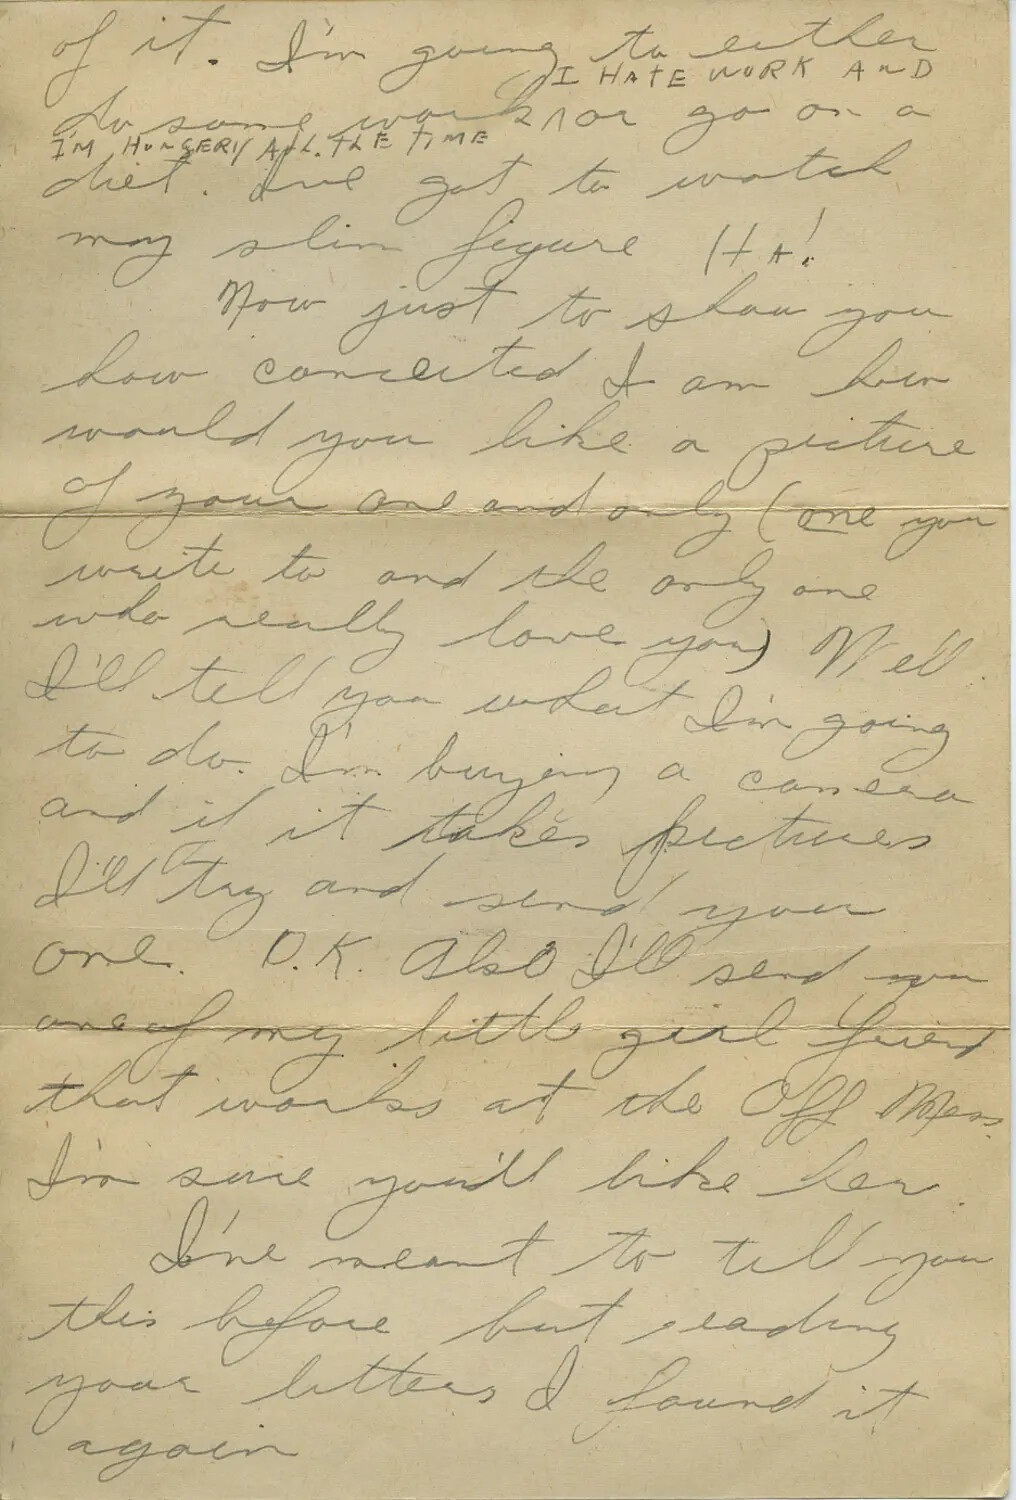 of it. I'm going to either
I HATE WORK AND
do some work ^ or go on a
I'M HUNGERY ALL THE TIME
diet. I've got to watch
my slim figure HA!
Now just to show you
how conceited I am how
would you like a picture
of your one and only (one you
write to and the only one
who really love you) We'll
I'll tell you what I'm going
to do. I'm buying a camera
and if it takes pictures
I'll try and send you
one. O.K. Also I'll send you
one of my little girl friend
that works at the Off Mess.
I'm sure you'll like her.
I've meant to tell you
this before but reading
your letters I found it
again